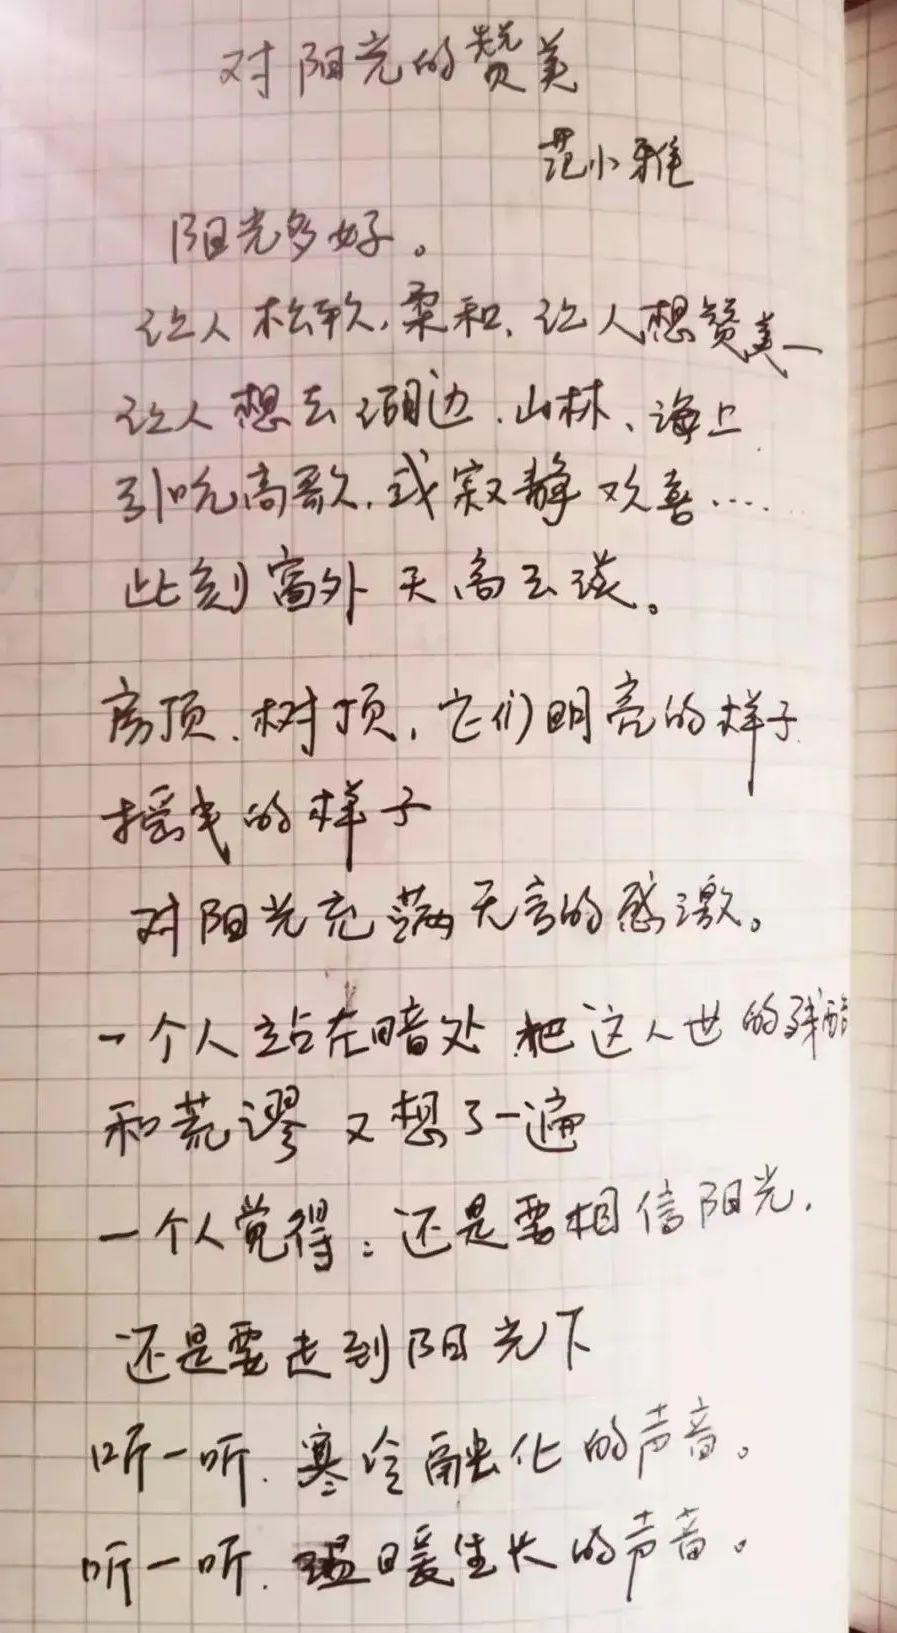 对阳光的赞美
范小雅
阳光多好。
让人松软，柔和，让人想赞美—
让人想去湖边、山林、海上
引吭高歌，或寂静欢喜……
此刻窗外天高云淡。
房顶、树顶，它们明亮的样子
摇曳的样子
对阳光充满无言的感激。
一个人站在暗处 把这人世的残酷
和荒谬又想了一遍
一个人觉得：还是要相信阳光，
还是要走到阳光下
听一听，寒冷融化的声音。
听一听，温暖生长的声音。